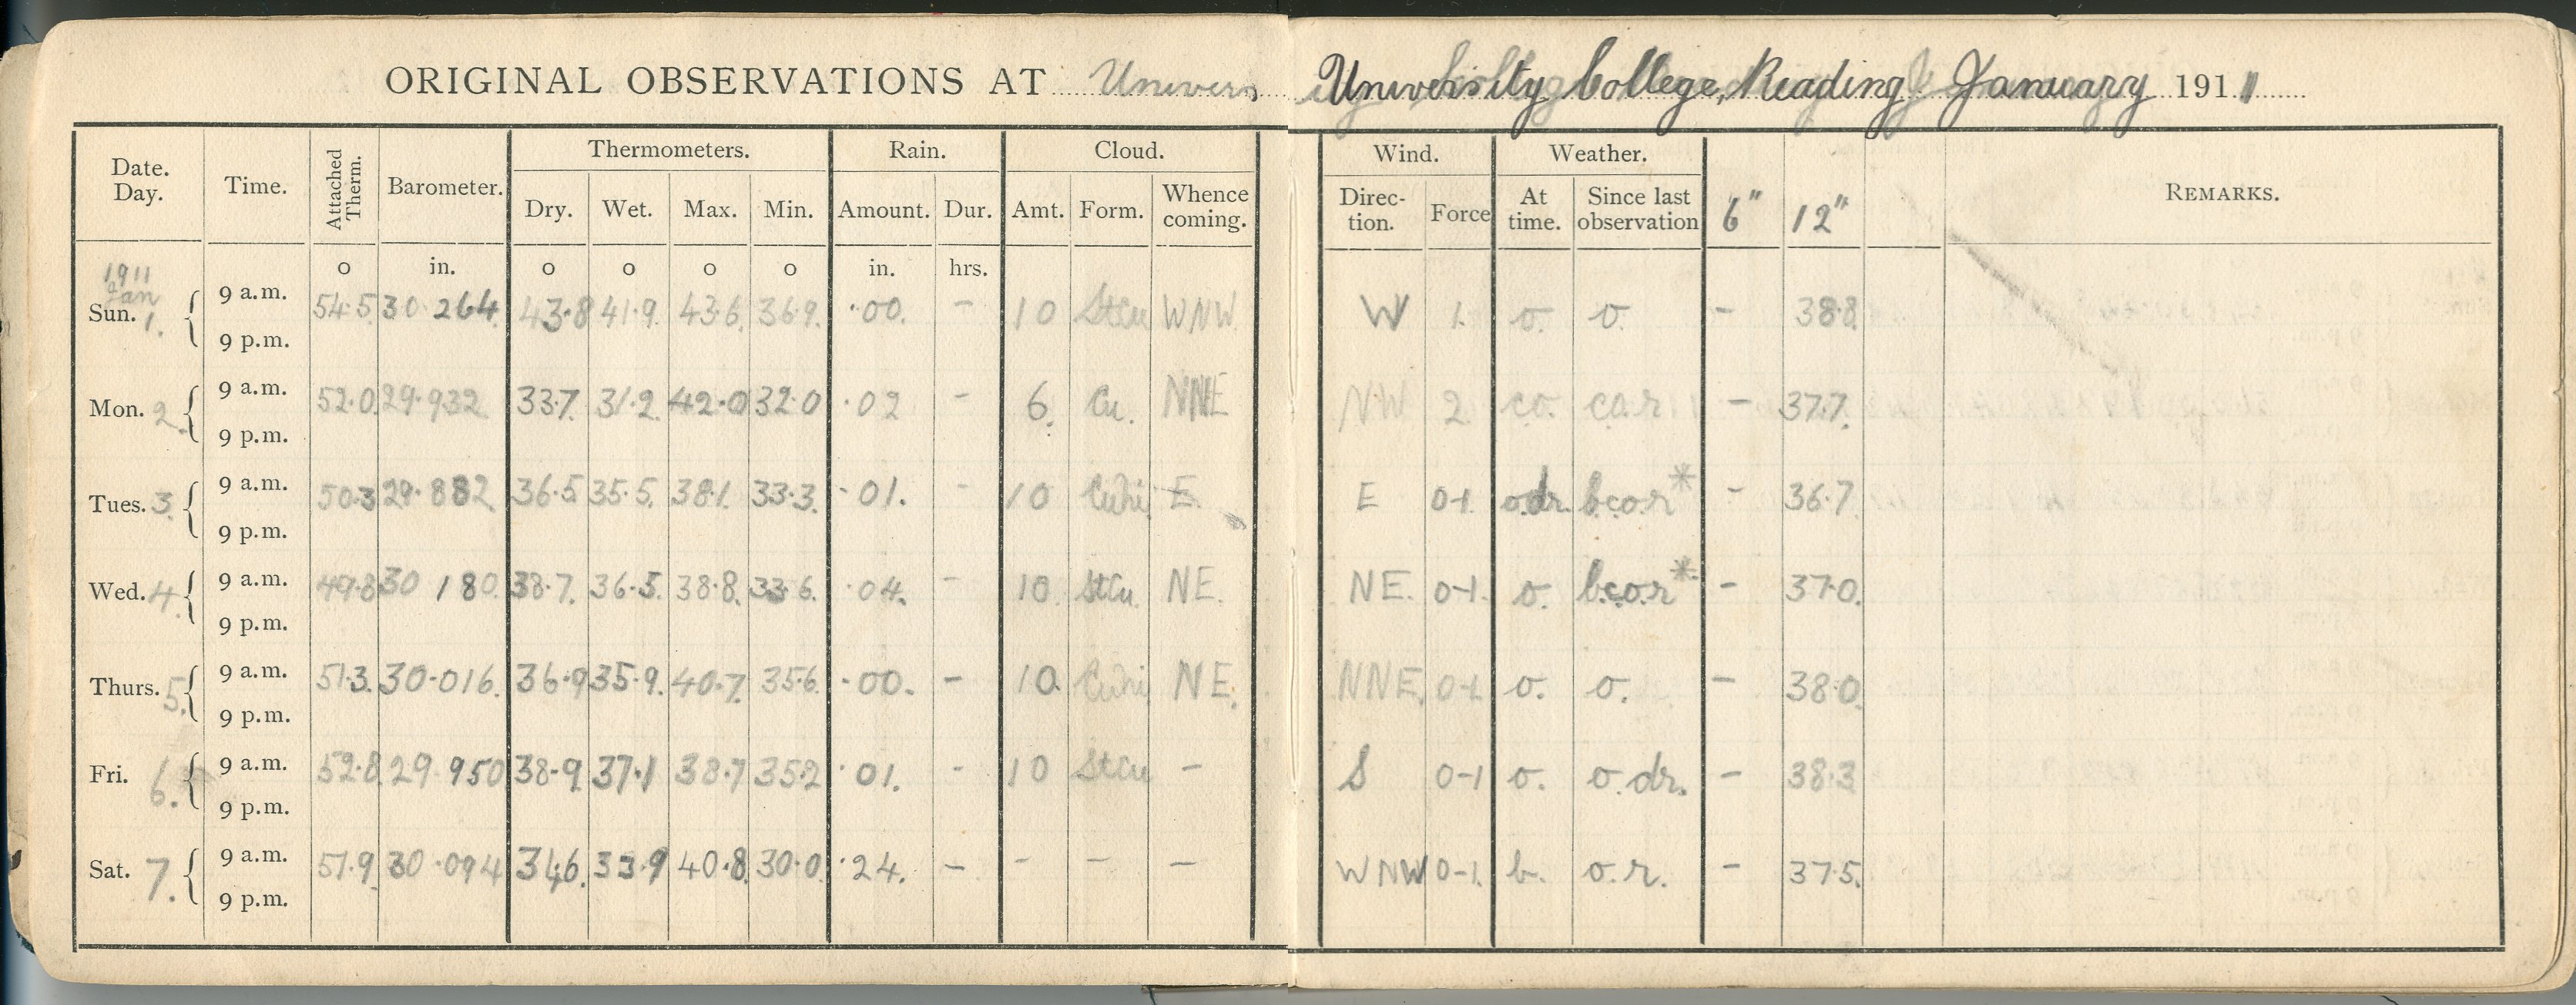 ORIGINAL OBSERVATIONS AT Univers University College, Reading January 1911
Date. Day. Time. Attached Therm. Barometer. Thermometers. Rain. Cloud. Wind. Weather. 6" 12" REMARKS.
Dry. Wet. Max. Min. Amount. Dur. Amt. Form. Whence coming. Direc-tion. Force At time. Since last observation
o in. o o o o in. hrs.
1911
Jan
Sun. 1. 9 a.m. 54.5 30 264 43.8 41.9. 43.6. 36.9. .00. - 10 StCu WNW W 1. o. o. - 38.8
9 p.m.
Mon. 2. 9 a.m. 52.0 29.932 33.7. 31.2 42.0 32.0 .02 - 6. Cu. NNE NW 2. co. co.r - 37.7.
9 p.m.
Tues. 3. 9 a.m. 50.3 29.882 36.5 35.5. 38.1. 33.3. .01. - 10 E. E 0-1. o.dr. bco.r* - 36.7.
9 p.m.
Wed. 4. 9 a.m. 49.8 30 180. 38.7. 36.5. 38.8. 33.6. .04. - 10. StCu. NE. NE. 0-1. o. bco.r* - 37.0.
9 p.m.
Thurs. 5. 9 a.m. 51.3. 30.016. 36.9 35.9. 40.7. 35.6. .00. - 10. NE. NNE. 0-1. o. o. - 38.0.
9 p.m.
Fri. 6. 9 a.m. 52.8 29.950 38.9 37.1 38.7 35.2 .01. - 10 StCu - S 0-1 o. o.dr. - 38.3
9 p.m.
Sat. 7. 9 a.m. 51.9. 30.094 34.6. 33.9 40.8. 30.0. .24. - - - - WNW 0-1. b. o.r. - 37.5.
9 p.m.